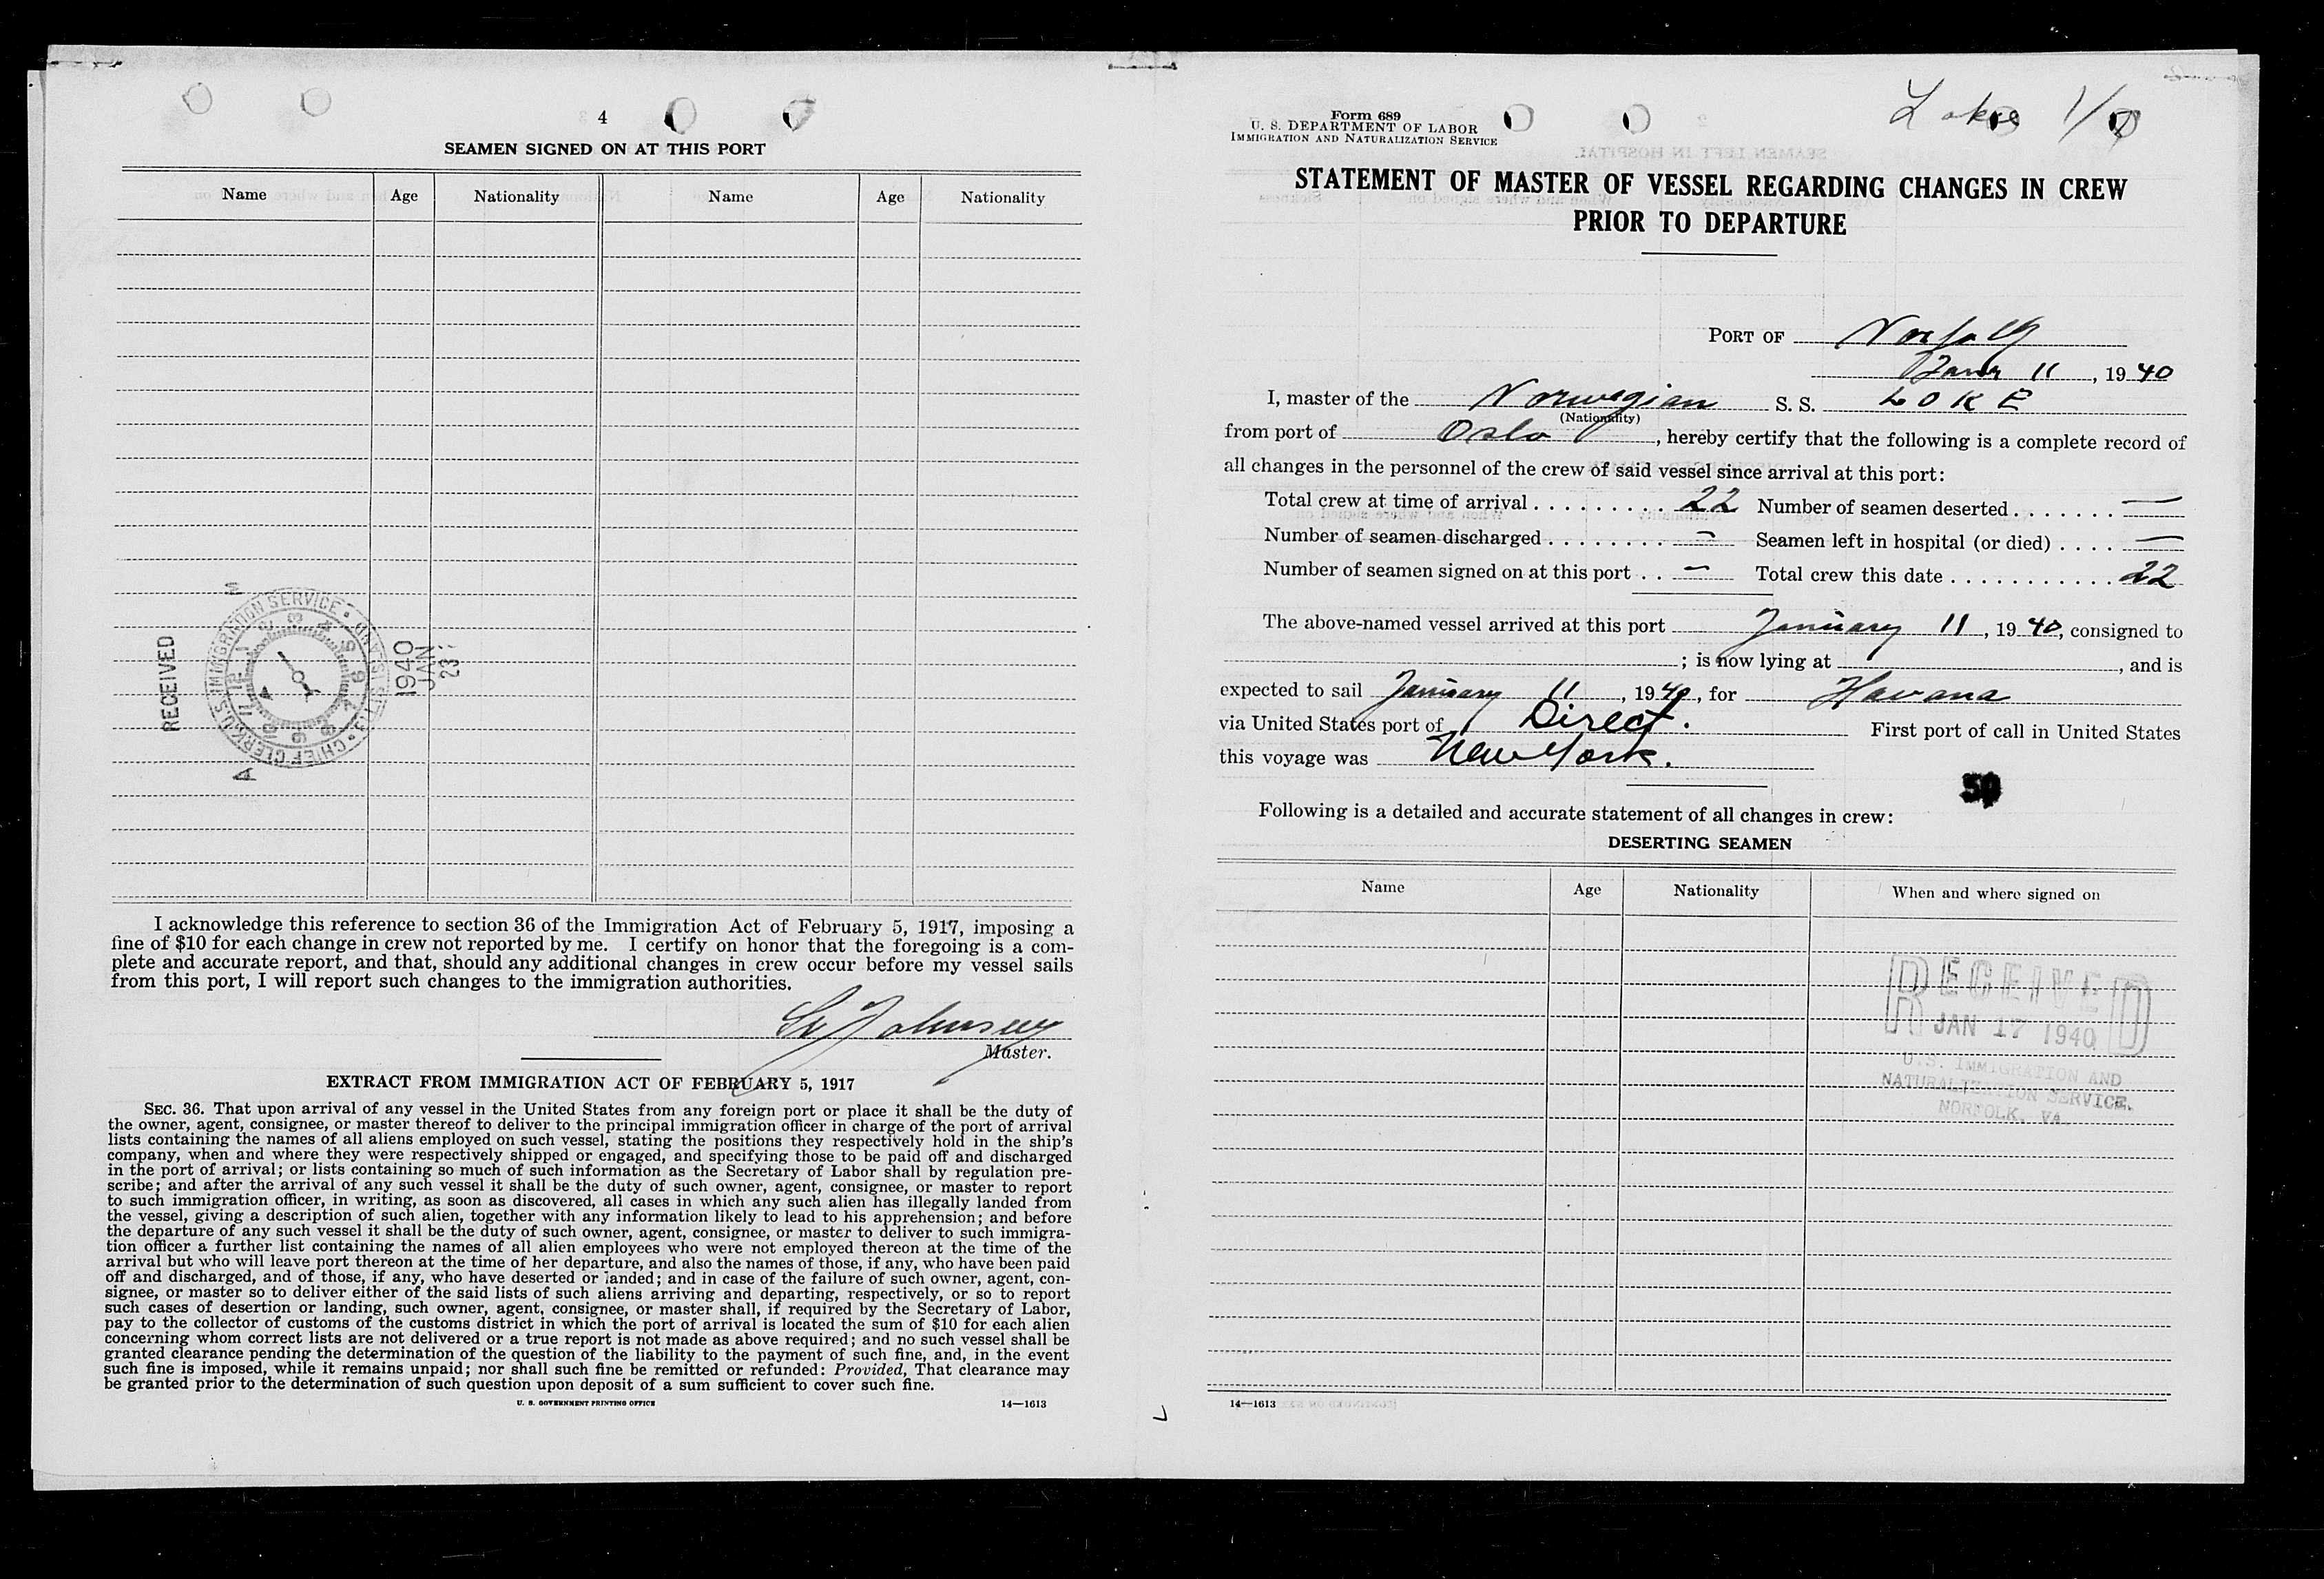 4
SEAMEN SIGNED ON AT THIS PORT
Name Age Nationality Name Age Nationality
RECEIVED
U.S. IMMIGRATION SERVICE
CHIEF CLERK
1940
JAN
23
I acknowledge this reference to section 36 of the Immigration Act of February 5, 1917, imposing a
fine of $10 for each change in crew not reported by me. I certify on honor that the foregoing is a com-
plete and accurate report, and that, should any additional changes in crew occur before my vessel sails
from this port, I will report such changes to the immigration authorities.
Master.
EXTRACT FROM IMMIGRATION ACT OF FEBRUARY 5, 1917
SEC. 36. That upon arrival of any vessel in the United States from any foreign port or place it shall be the duty of
the owner, agent, consignee, or master thereof to deliver to the principal immigration officer in charge of the port of arrival
lists containing the names of all aliens employed on such vessel, stating the positions they respectively hold in the ship's
company, when and where they were respectively shipped or engaged, and specifying those to be paid off and discharged
in the port of arrival; or lists containing so much of such information as the Secretary of Labor shall by regulation pre-
scribe; and after the arrival of any such vessel it shall be the duty of such owner, agent, consignee, or master to report
to such immigration officer, in writing, as soon as discovered, all cases in which any such alien has illegally landed from
the vessel, giving a description of such alien, together with any information likely to lead to his apprehension; and before
the departure of any such vessel it shall be the duty of such owner, agent, consignee, or master to deliver to such immigra-
tion officer a further list containing the names of all alien employees who were not employed thereon at the time of the
arrival but who will leave port thereon at the time of her departure, and also the names of those, if any, who have been paid
off and discharged, and of those, if any, who have deserted or landed; and in case of the failure of such owner, agent, con-
signee, or master so to deliver either of the said lists of such aliens arriving and departing, respectively, or so to report
such cases of desertion or landing, such owner, agent, consignee, or master shall, if required by the Secretary of Labor,
pay to the collector of customs of the customs district in which the port of arrival is located the sum of $10 for each alien
concerning whom correct lists are not delivered or a true report is not made as above required; and no such vessel shall be
granted clearance pending the determination of the question of the liability to the payment of such fine, and, in the event
such fine is imposed, while it remains unpaid; nor shall such fine be remitted or refunded: Provided, That clearance may
be granted prior to the determination of such question upon deposit of a sum sufficient to cover such fine.
U. S. GOVERNMENT PRINTING OFFICE 14—1613
Form 689
U. S. DEPARTMENT OF LABOR
IMMIGRATION AND NATURALIZATION SERVICE
STATEMENT OF MASTER OF VESSEL REGARDING CHANGES IN CREW
PRIOR TO DEPARTURE
PORT OF Norfolk
Janr 11, 1940
I, master of the Norwegian S. S. LOKE
(Nationality)
from port of Oslo, hereby certify that the following is a complete record of
all changes in the personnel of the crew of said vessel since arrival at this port:
Total crew at time of arrival 22 Number of seamen deserted —
Number of seamen discharged — Seamen left in hospital (or died) —
Number of seamen signed on at this port — Total crew this date 22
The above-named vessel arrived at this port January 11, 1940, consigned to
; is now lying at , and is
expected to sail January 11, 1940, for Havana
via United States port of Direct. First port of call in United States
this voyage was New York.
50
Following is a detailed and accurate statement of all changes in crew:
DESERTING SEAMEN
Name Age Nationality When and where signed on
RECEIVED
JAN 17 1940
U.S. IMMIGRATION AND
NATURALIZATION SERVICE.
NORFOLK, VA.
14—1613